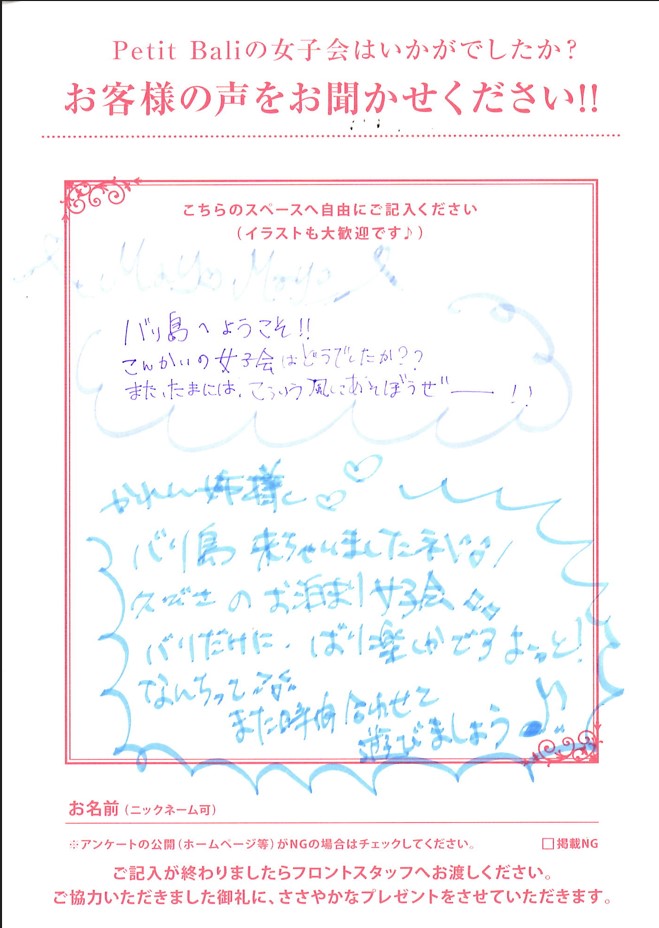 Petit Baliの女子会はいかがでしたか?
お客様の声をお聞かせください!!
こちらのスペースへ自由にご記入ください
(イラストも大歓迎です♪)
Moyo Moyo
バリ島へようこそ!!
こんかいの女子会はどうでしたか??
また、たまには、こういう風にあそぼうぜ――!!
かれん姉様と♡♡
バリ島 来ちゃいましたネ
のお泊まり女子会
バリだけに、ばり楽しかですよっと!
なんちって
また時間合わせて
遊びましょう♪
お名前(ニックネーム可)
※アンケートの公開(ホームページ等)がNGの場合はチェックしてください。 □掲載NG
ご記入が終わりましたらフロントスタッフへお渡しください。
ご協力いただきました御礼に、ささやかなプレゼントをさせていただきます。